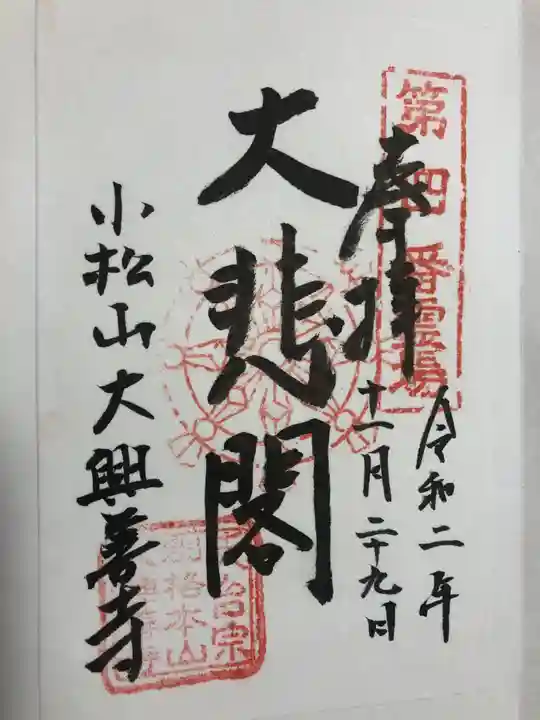 第四番霊場
奉拝
令和二年
十一月二十九日
大悲閣
小松山大興善寺
天台宗
別格本山
大興善寺